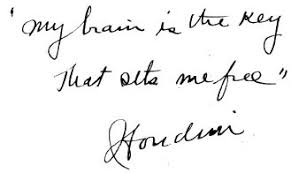 "My brain is the key
That sets me free"
Houdini